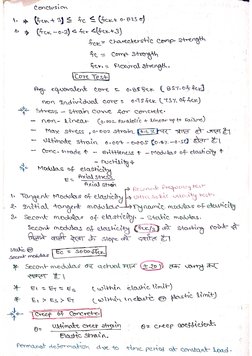 Conclusion
1. * (fck + 3) ≤ fc ≤ (fck + 0.825σ)
2. * (fck - 0.3) < fc < +3
fck = Characteristic Comp. Strength
fc = Comp Strength
fcr. = Flexural Strength.
Core Test
Avg equivalent core = 0.85 fck (85% of fck)
non individual core = 0.75 fck (75% of fck)
* Stress - strain curve for concrete
- non-linear
- Max stress, 0.002 strain पर प्राप्त हो जाता है।
- Ultimate strain होता है।
- Conc. Grade ↑ - Brittleness ↑ - Modulus of elasticity ↑
- Ductility ↓
* Modulus of elasticity
E = Axial stress / Axial strain
1. Tangent Modulus of elasticity
Resonant frequency test
Ultra sonic velocity test
2. Initial tangent modulus - Dynamic modulus of elasticity
3. Secant modulus of elasticity. - Static modulus.
Secant modulus of elasticity (fck/3) की starting point से
मिलाने वाली रेखा के slope को कहते है।
Static @ Secant modulus
Ec = 5000√fck
* Secant modulus का actual मान (±20%) तक vary कर सकता है।
* Ei = ET = Es (within elastic limit)
* Ei > Es > ET (within inelastic @ plastic limit)
* Creep of Concrete:
θ = Ultimate creep strain / Elastic strain.
θ = creep coefficients
Permanent deformation due to time period at constant load.